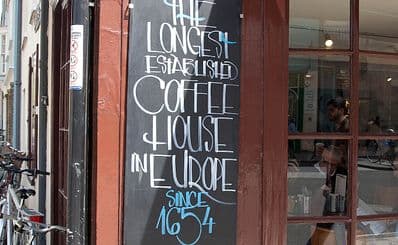 THE
LONGEST
ESTABLISHED
COFFEE
HOUSE
IN EUROPE
SINCE
1654